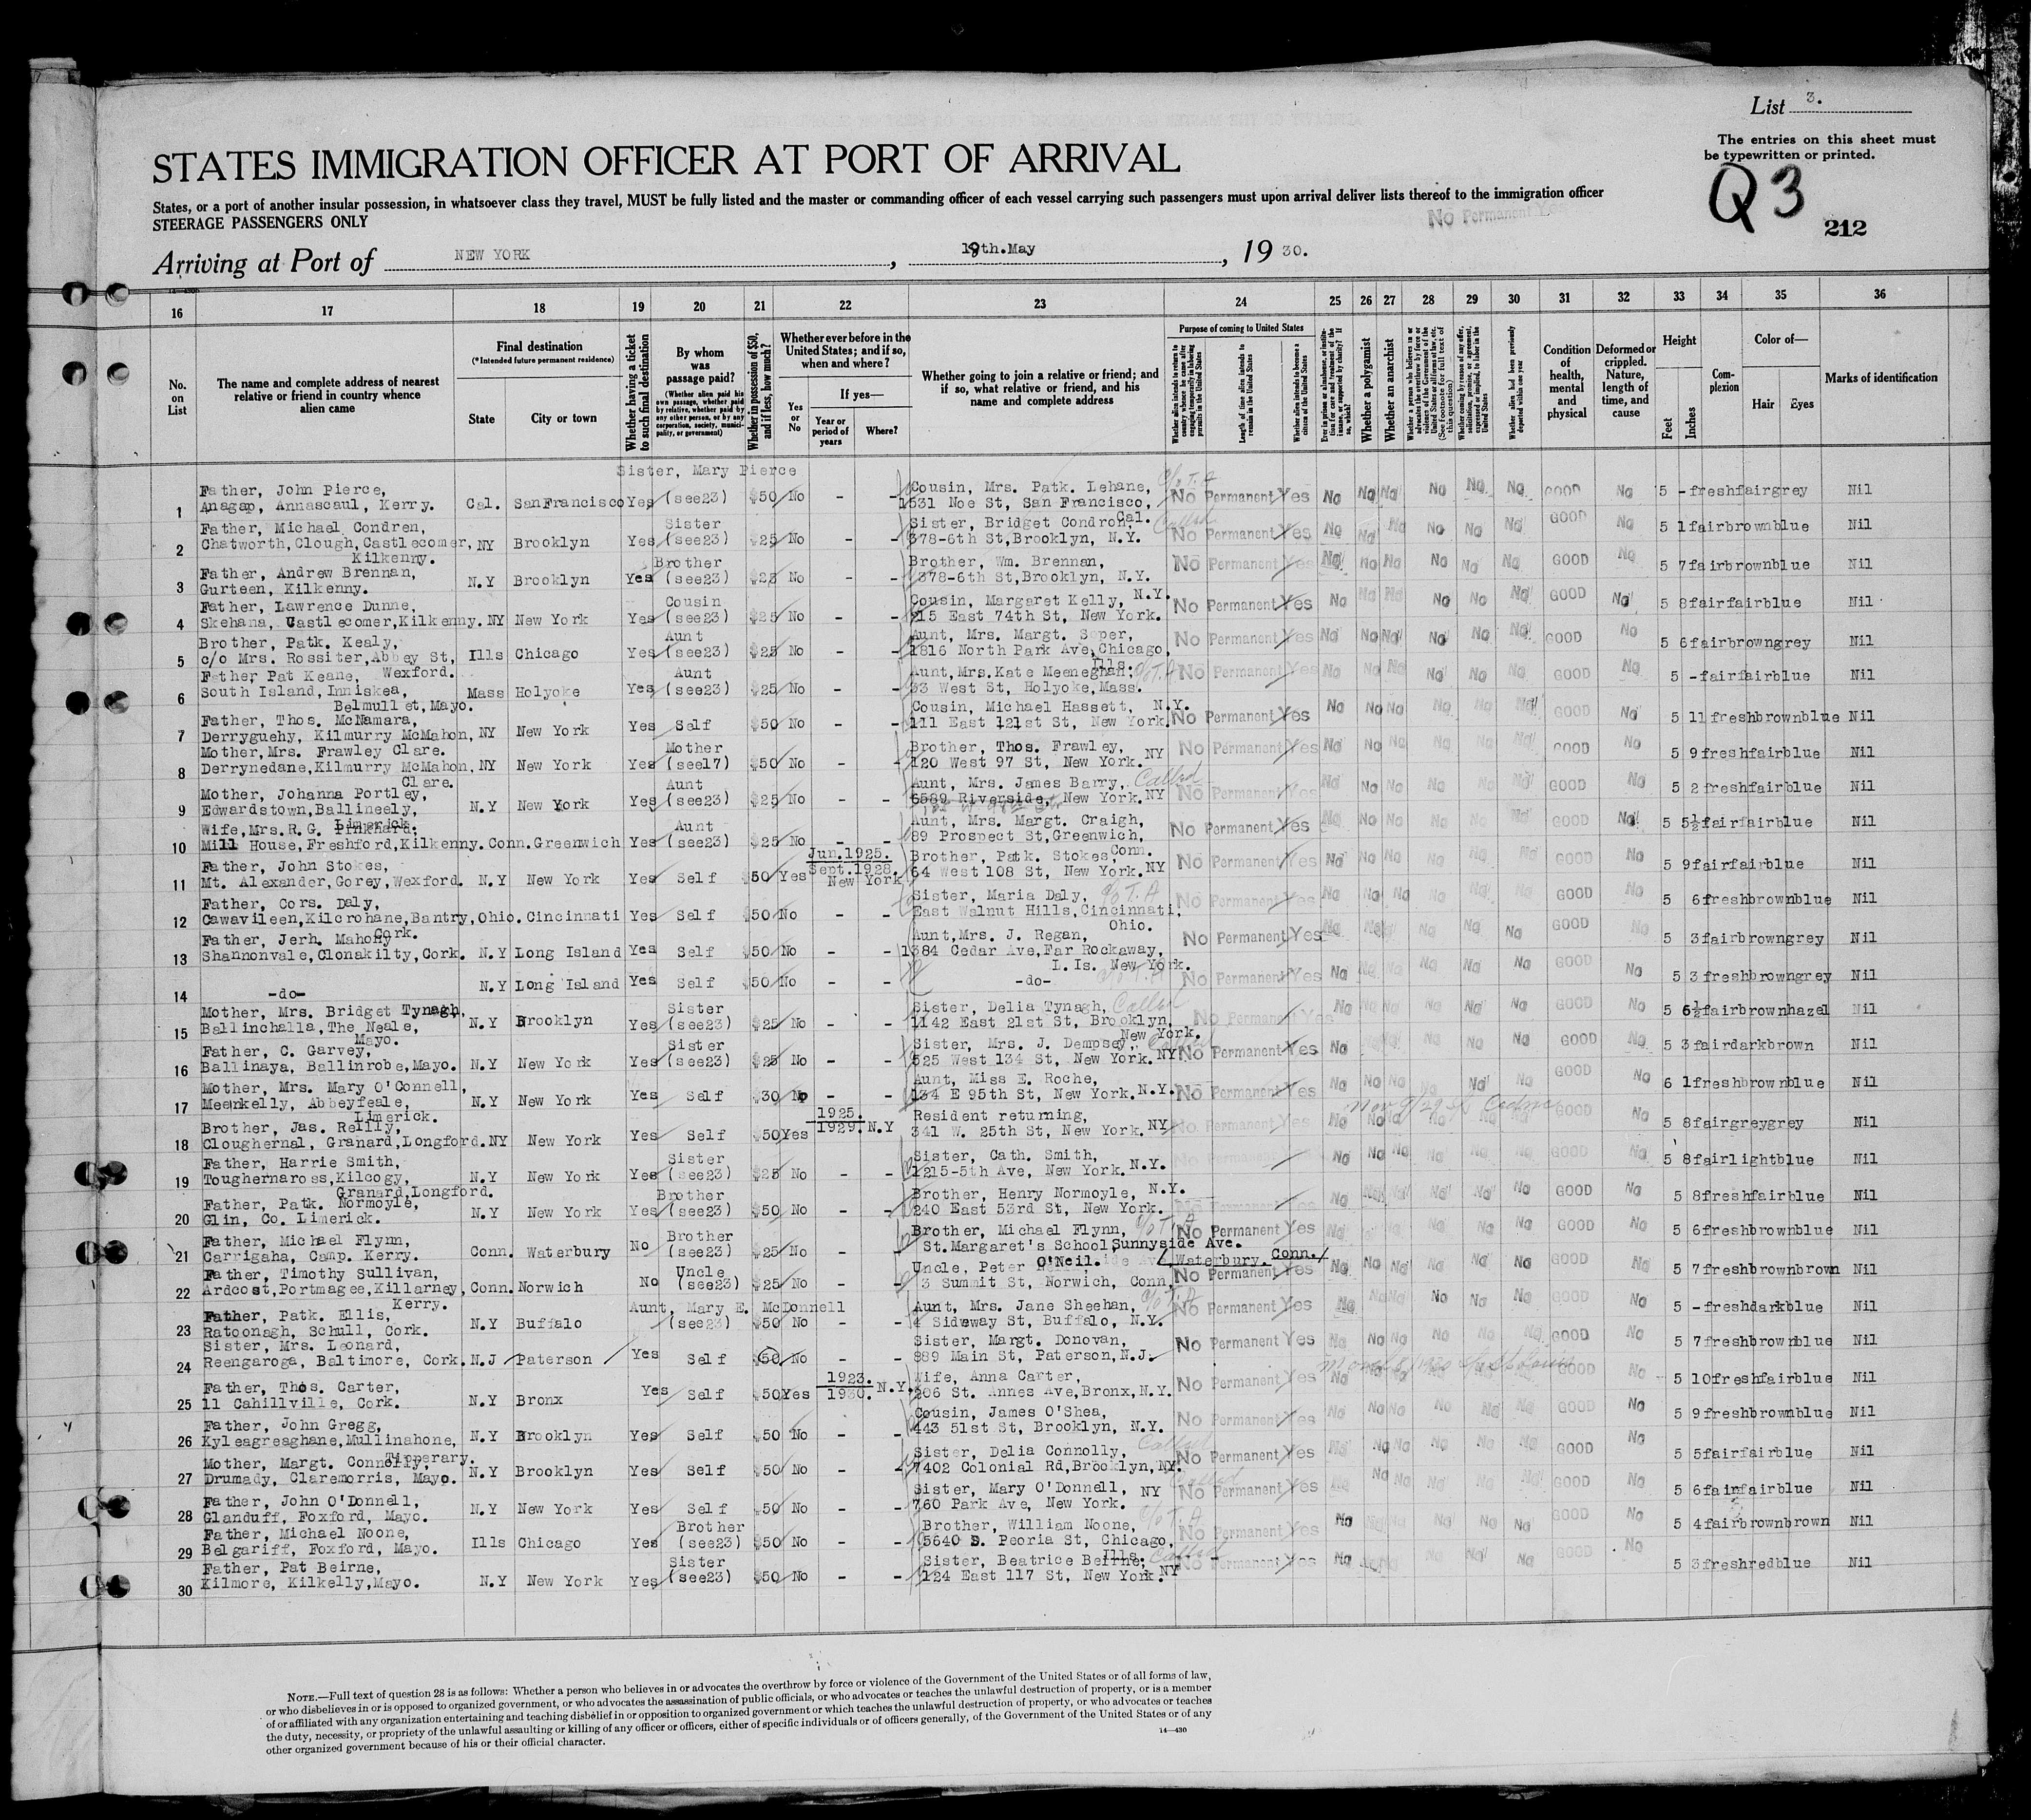 List 3.
The entries on this sheet must
be typewritten or printed.
STATES IMMIGRATION OFFICER AT PORT OF ARRIVAL
Q3
212
States, or a port of another insular possession, in whatsoever class they travel, MUST be fully listed and the master or commanding officer of each vessel carrying such passengers must upon arrival deliver lists thereof to the immigration officer
STEERAGE PASSENGERS ONLY
No Permanent
Arriving at Port of NEW YORK, 19th.May, 19 30.
16 17 18 19 20 21 22 23 24 25 26 27 28 29 30 31 32 33 34 35 36
No. on List
The name and complete address of nearest relative or friend in country whence alien came
Final destination
(*Intended future permanent residence)
State
City or town
Whether having a ticket to such final destination
By whom was passage paid?
(Whether alien paid his own passage, whether paid by relative, whether paid by any other person, or by any corporation, society, municipality, or government)
Whether in possession of $50, and if less, how much?
Whether ever before in the United States; and if so, when and where?
Yes or No
If yes—
Year or period of years
Where?
Whether going to join a relative or friend; and if so, what relative or friend, and his name and complete address
Purpose of coming to United States
Whether alien intends to return to country whence he came after engaging temporarily in laboring pursuits in the United States
Length of time alien intends to remain in the United States
Whether alien intends to become a citizen of the United States
Ever in prison or almshouse, or institution for care and treatment of the insane, or supported by charity? If so, which?
Whether a polygamist
Whether an anarchist
Whether a person who believes in or advocates the overthrow by force or violence of the Government of the United States or all forms of law, etc. (See footnote for full text of this question)
Whether coming by reason of any offer, solicitation, promise, or agreement, expressed or implied, to labor in the United States
Whether alien had been previously deported within one year
Condition of health, mental and physical
Deformed or crippled. Nature, length of time, and cause
Height
Feet
Inches
Complexion
Color of—
Hair
Eyes
Marks of identification
Sister, Mary Pierce
1 Father, John Pierce, Anagap, Annascaul, Kerry. Cal. SanFrancisco Yes (see23) $50 No - - Cousin, Mrs. Patk. Lehane, 1531 Noe St, San Francisco, Cal. No Permanent Yes No No No No No No GOOD No 5 - fresh fair grey Nil
2 Father, Michael Condren, Chatworth,Clough,Castlecomer, Kilkenny. NY Brooklyn Yes Sister (see23) $25 No - - Sister, Bridget Condron, 378-6th St,Brooklyn, N.Y. Called No Permanent Yes No No No No No No GOOD No 5 1 fair brown blue Nil
3 Father, Andrew Brennan, Gurteen, Kilkenny. N.Y Brooklyn Yes Brother (see23) $25 No - - Brother, Wm. Brennan, 378-6th St,Brooklyn, N.Y. No Permanent Yes No No No No No No GOOD No 5 7 fair brown blue Nil
4 Father, Lawrence Dunne, Skehana, Castlecomer,Kilkenny. NY New York Yes Cousin (see23) $25 No - - Cousin, Margaret Kelly, N.Y. 215 East 74th St, New York. No Permanent Yes No No No No No No GOOD No 5 8 fair fair blue Nil
5 Brother, Patk. Kealy, c/o Mrs. Rossiter,Abbey St, Wexford. Ills Chicago Yes Aunt (see23) $25 No - - Aunt, Mrs. Margt. Soper, 1816 North Park Ave,Chicago, Ills. No Permanent Yes No No No No No No GOOD No 5 6 fair brown grey Nil
6 Father Pat Keane, South Island, Inniskea, Belmullet, Mayo. Mass Holyoke Yes Aunt (see23) $25 No - - Aunt,Mrs.Kate Meeneghan, 53 West St, Holyoke,Mass. No Permanent Yes No No No No No No GOOD No 5 - fair fair blue Nil
7 Father, Thos. McNamara, Derryguehy, Kilmurry McMahon, Clare. NY New York Yes Self $50 No - - Cousin, Michael Hassett, N.Y. 111 East 121st St, New York. No Permanent Yes No No No No No No GOOD No 5 11 fresh brown blue Nil
8 Mother,Mrs. Frawley Derrynedane,Kilmurry McMahon, Clare. NY New York Yes Mother (see17) $50 No - - Brother, Thos. Frawley, 120 West 97 St, New York. NY No Permanent Yes No No No No No No GOOD No 5 9 fresh fair blue Nil
9 Mother, Johanna Portley, Edwardstown,Ballineely, Limerick. N.Y New York Yes Aunt (see23) $25 No - - Aunt, Mrs. James Barry, Called 6589 Riverside, New York. NY No Permanent Yes No No No No No No GOOD No 5 2 fresh fair blue Nil
10 Wife,Mrs.R.G. Pinkhard. Mill House, Freshford,Kilkenny. Conn. Greenwich Yes Aunt (see23) $25 No - - Aunt, Mrs. Margt. Craigh, 89 Prospect St,Greenwich, Conn. No Permanent Yes No No No No No No GOOD No 5 5½ fair fair blue Nil
11 Father, John Stokes, Mt. Alexander,Gorey,Wexford. N.Y New York Yes Self $50 Yes Jun.1925. Sept.1928. New York Brother, Patk. Stokes, 64 West 108 St, New York. NY No Permanent Yes No No No No No No GOOD No 5 9 fair fair blue Nil
12 Father, Cors. Daly, Cawavileen,Kilcrohane,Bantry, Cork. Ohio. Cincinnati Yes Self $50 No - - Sister, Maria Daly, East Walnut Hills,Cincinnati, Ohio. No Permanent Yes No No No No No No GOOD No 5 6 fresh brown blue Nil
13 Father, Jerh. Mahony Shannonvale,Clonakilty,Cork. N.Y Long Island Yes Self $50 No - - Aunt,Mrs. J. Regan, 1384 Cedar Ave,Far Rockaway, L. Is. New York. No Permanent Yes No No No No No No GOOD No 5 3 fair brown grey Nil
14 -do- N.Y Long Island Yes Self $50 No - - -do- No Permanent Yes No No No No No No GOOD No 5 3 fresh brown grey Nil
15 Mother, Mrs. Bridget Tynagh, Ballinchalla,The Neale, Mayo. N.Y Brooklyn Yes Sister (see23) $25 No - - Sister, Delia Tynagh, Called 1142 East 21st St, Brooklyn, New York. No Permanent Yes No No No No No No GOOD No 5 6½ fair brown hazel Nil
16 Father, C. Garvey, Ballinaya, Ballinrobe,Mayo. N.Y New York Yes Sister (see23) $25 No - - Sister, Mrs. J. Dempsey, 525 West 134 St, New York. NY No Permanent Yes No No No No No No GOOD No 5 3 fair dark brown Nil
17 Mother, Mrs. Mary O'Connell, Meenkelly, Abbeyfeale, Limerick. N.Y New York Yes Self $30 No - - Aunt, Miss E. Roche, 134 E 95th St, New York. N.Y. No Permanent Yes No No No No No No GOOD No 6 1 fresh brown blue Nil
18 Brother, Jas. Reilly, Cloughernal, Granard,Longford. NY New York Yes Self $50 Yes 1925. 1929. N.Y Resident returning, 341 W. 25th St, New York. NY No Permanent Yes No No No No No No GOOD No 5 8 fair grey grey Nil
19 Father, Harrie Smith, Toughernaross,Kilcogy, Granard,Longford. N.Y New York Yes Sister (see23) $25 No - - Sister, Cath. Smith, 1215-5th Ave, New York. N.Y. No No No No No No GOOD No 5 8 fair light blue Nil
20 Father, Patk. Normoyle, Glin, Co. Limerick. N.Y New York Yes Brother (see23) $50 No - - Brother, Henry Normoyle, N.Y. 240 East 53rd St, New York. No Permanent Yes No No No No No No GOOD No 5 8 fresh fair blue Nil
21 Father, Michael Flynn, Carrigaha, Camp. Kerry. Conn. Waterbury No Brother (see23) $25 No - - Brother, Michael Flynn, St.Margaret's School,Sunnyside Ave. Waterbury. Conn. No Permanent Yes No No No No No No GOOD No 5 6 fresh brown blue Nil
22 Father, Timothy Sullivan, Ardcost,Portmagee,Killarney, Kerry. Conn. Norwich No Uncle (see23) $25 No - - Uncle, Peter O'Neil. 3 Summit St, Norwich, Conn. No Permanent Yes No No No No No No GOOD No 5 7 fresh brown brown Nil
Aunt, Mary E. McDonnell
23 Father, Patk. Ellis, Ratoonagh, Schull, Cork. N.Y Buffalo (see23) $50 No - - Aunt, Mrs. Jane Sheehan, 4 Sidway St, Buffalo, N.Y. No Permanent Yes No No No No No No GOOD No 5 - fresh dark blue Nil
24 Sister, Mrs. Leonard, Reengaroga, Baltimore, Cork. N.J Paterson Yes Self $50 No - - Sister, Margt. Donovan, 889 Main St, Paterson,N.J. No Permanent Yes No No No No No No GOOD No 5 7 fresh brown blue Nil
25 Father, Thos. Carter, 11 Cahillville, Cork. N.Y Bronx Yes Self $50 Yes 1923. 1930. N.Y. Wife, Anna Carter, 206 St. Annes Ave,Bronx,N.Y. No Permanent Yes No No No No No No GOOD No 5 10 fresh fair blue Nil
26 Father, John Gregg, Kyleagreaghane,Mullinahone, Tipperary. N.Y Brooklyn Yes Self $50 No - - Cousin, James O'Shea, 443 51st St, Brooklyn, N.Y. No Permanent Yes No No No No No No GOOD No 5 9 fresh brown blue Nil
27 Mother, Margt. Connolly, Drumady, Claremorris, Mayo. N.Y Brooklyn Yes Self $50 No - - Sister, Delia Connolly, 7402 Colonial Rd,Brooklyn,NY. No Permanent Yes No No No No No No GOOD No 5 5 fair fair blue Nil
28 Father, John O'Donnell, Glanduff, Foxford, Mayo. N.Y New York Yes Self $50 No - - Sister, Mary O'Donnell, NY 760 Park Ave, New York. No Permanent Yes No No No No No No GOOD No 5 6 fair fair blue Nil
29 Father, Michael Noone, Belgariff, Foxford, Mayo. Ills Chicago Yes Brother (see23) $50 No - - Brother, William Noone, 5640 S. Peoria St, Chicago, Ills. No Permanent Yes No No No No No No GOOD No 5 4 fair brown brown Nil
30 Father, Pat Beirne, Kilmore, Kilkelly,Mayo. N.Y New York Yes Sister (see23) $50 No - - Sister, Beatrice Beirne, Called 124 East 117 St, New York. NY No Permanent Yes No No No No No No GOOD No 5 3 fresh red blue Nil
NOTE.—Full text of question 28 is as follows: Whether a person who believes in or advocates the overthrow by force or violence of the Government of the United States or of all forms of law,
or who disbelieves in or is opposed to organized government, or who advocates the assassination of public officials, or who advocates or teaches the unlawful destruction of property, or is a member
of or affiliated with any organization entertaining and teaching disbelief in or opposition to organized government or which teaches the unlawful destruction of property, or who advocates or teaches
the duty, necessity, or propriety of the unlawful assaulting or killing of any officer or officers, either of specific individuals or of officers generally, of the Government of the United States or of any
other organized government because of his or their official character.
14—430